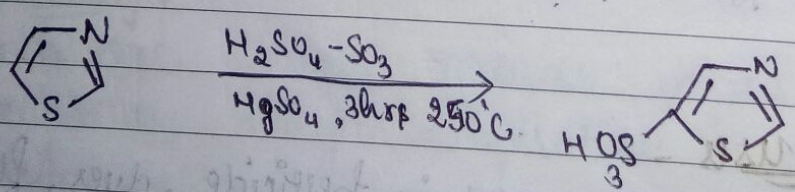 N
S
H₂SO₄-SO₃
HgSO₄, 3hrs 250°C.
N
S
HO₃S